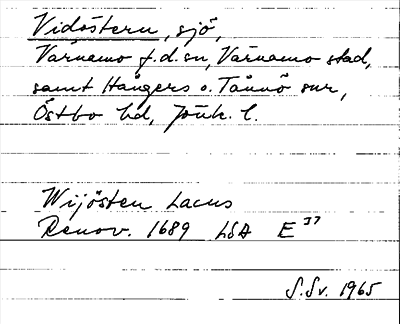 Vidöstern, sjö,
Värnamo f.d. sn, Värnamo stad,
samt Hångers o. Tånnö snr,
Östbo hd, Jönk. l.
Wijösten Lacus
Renov. 1689 LSA E 37
S.Sv. 1965